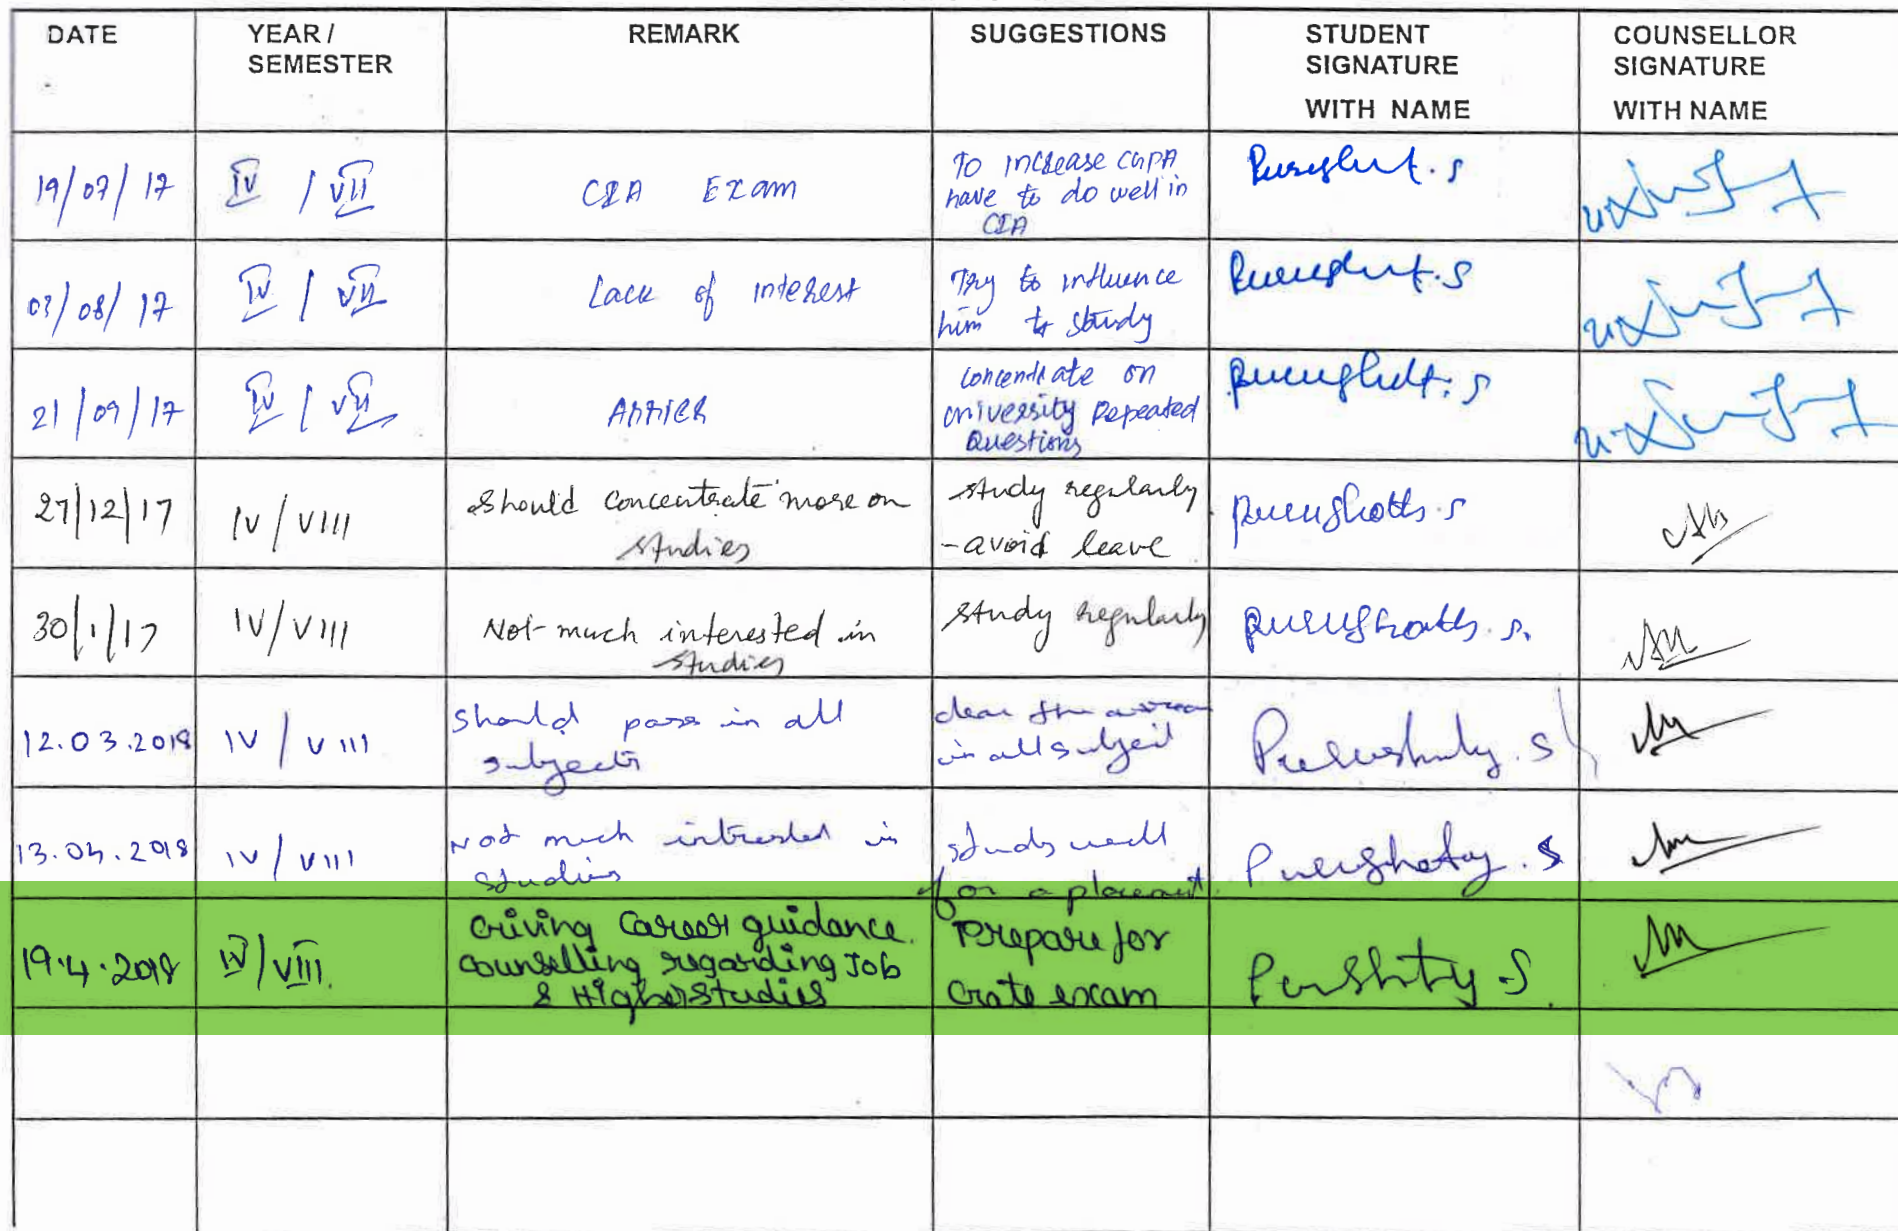 DATE
YEAR /
SEMESTER
REMARK
SUGGESTIONS
STUDENT
SIGNATURE
WITH NAME
COUNSELLOR
SIGNATURE
WITH NAME
19/07/17
IV / VII
CIA Exam
To increase CGPA
have to do well in
CIA
03/08/17
IV / VII
Lack of interest
Try to influence
him to study
21/09/17
IV / VII
Arrier
concentrate on
university Repeated
Questions
27/12/17
IV / VIII
should concentrate more on
studies
study regularly
- avoid leave
30/1/17
IV / VIII
Not much interested in
studies
study regularly
12.03.2018
IV / VIII
should pass in all
subjects
clear the
in all subject
13.04.2018
IV / VIII
Not much intrested in
studies
study well
for a
19.4.2018
IV / VIII
Giving Career guidance
counselling regarding Job
& Higher studies
Prepare for
Gate exam